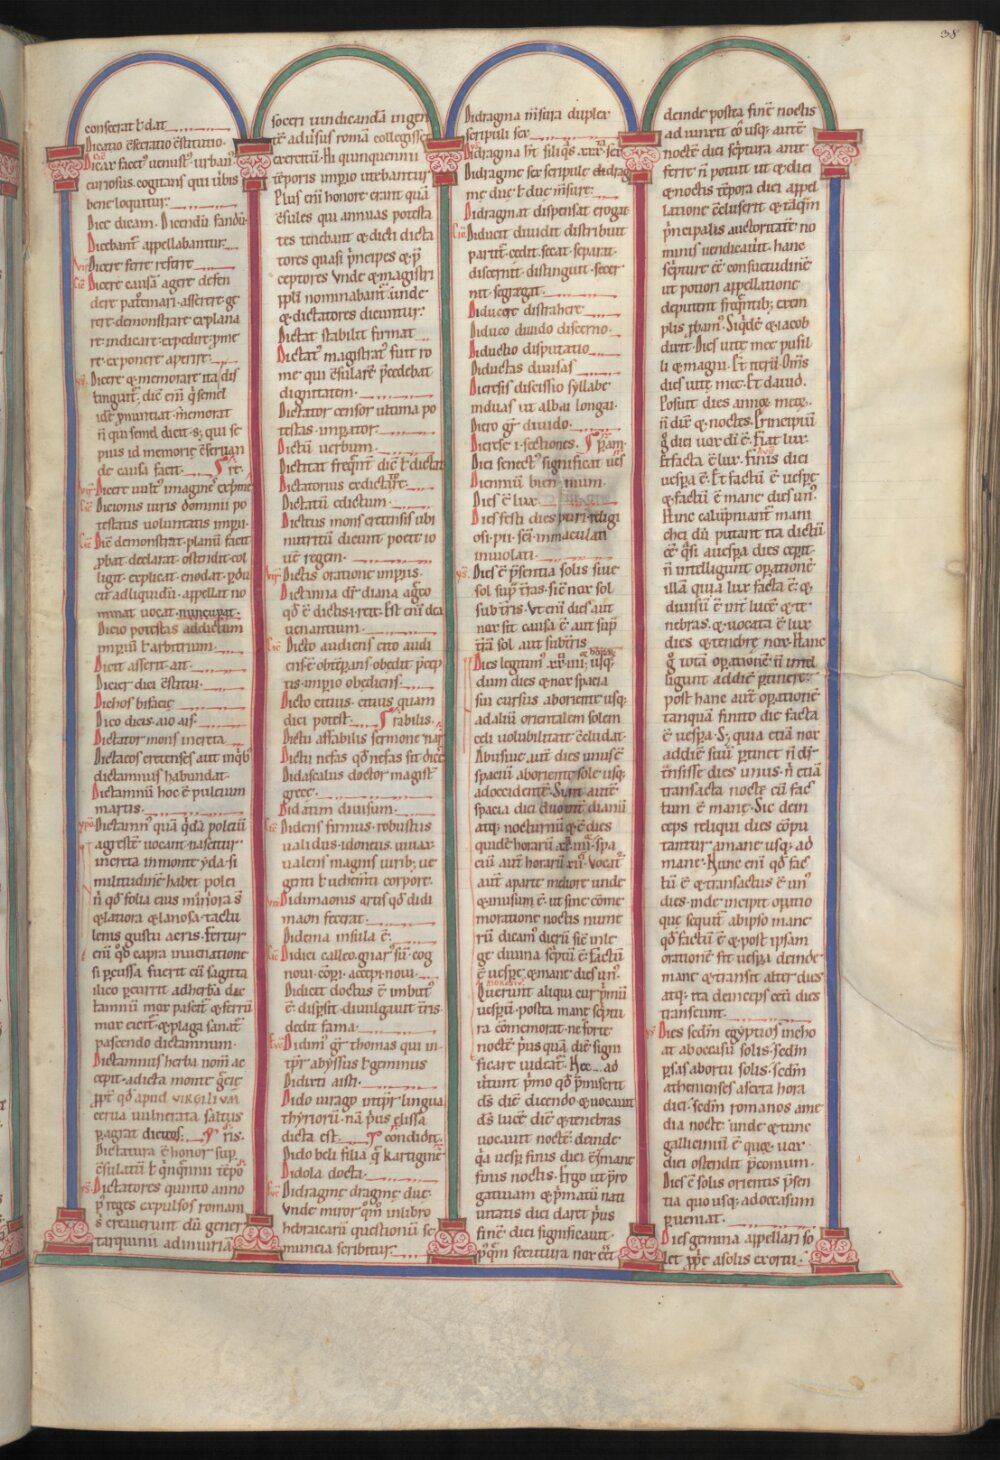 38
consecrat ł dat
Dicatio c̄secratio c̄stitutio.
Dicax facet᷒ uenust᷒ urban᷒
curiosus. cogitans qui ūbis
bene loquitur.
Dice dicam. Dicendū fandū.
Dicebant᷑ appellabantur.
Dicere ferre referre
Dicere causā agere defen
dere
rere demonstrare explana
re indicare expedire
re exponere aperire.
Dicere & memorare ita dis
tingunt᷑. dic̄ eni q̇ semel
idē p̄nuntiat memorat
n̄ qui semel dicit. s; qui se
pius id memorie c̄seruan
de causa facit. re.
Dicere uult᷒ imaginē exp̄me
Dicionis iuris dominii po
testatis uoluntatis imp̄ii.
Dic̄ demonstrat. planū facit
ꝓbat declarat. ostendit. col
ligit. explicat. enodat.
ad liquidū. appellat no
minat uocat. nuncupat.
Dicio potestas addictum
imp̄iū ł arbitrium.
Dicit asserit. ait.
Dicier dici c̄stitui.
Dichos bifacię
Dico dicis. aio ais.
Dictator mons in creta
Dictacos cretenses aut in q̇b᷒
dictamnus habundat.
Dictamnū hoc ē puleium
martis.
Dictamn᷒ quā q̇dā poleiū
agreste uocant. nascitur
in creta in monte yda. si
militudinē habet polei
n̄ qđ folia eius minora s̄
& latiora & lanosa. tactu
lenis gustu acris. fertur
eni qđ capra in uenatione
si ꝑcussa fuerit cū sagitta
ilico ꝑcurrit ad herbā dic
tamnū mox pascit᷑ & ferrū
mox eicit᷑. & plaga sanat᷑
pascendo dictamnum.
Dictamnus herba nom̄ ac
cepit. a dicta monte
ꝓpt̄ qđ apud VIRGILIVM
cerua uulnerata saltus
ꝑagrat dicteos. ris.
Dictatura ē honor sup̄
c̄sulatū ł
Dictatores quinto anno
p̄ reges expulsos romani
s̄ creauerunt dū gener
tarquinii ad iniuriā
soceri uindicandā ingn
tē aduersus romā collegisset
exercitū. Hi quinquennii
tēporis imꝑio utebantur
Plus eni honore erant quā
c̄sules qui annuas potesta
tes tenebant & dicti dicta
tores quasi p̄ncipes & p̄
ceptores Vnde & magistri
ppl̄i nominabant᷑. unde
& dictatores dicuntur.
Dictat stabilit firmat
Dictat᷒ magistrat᷒ fuit ro
me qui c̄sularē p̄cedebat
dignitatem.
Dictator censor ultima po
testas. imꝑator.
Dictū uerbum.
Dictitat freq̄nt᷑ dic̄ ł dictat
Dictatorius
Dictatū edictum.
Dictus mons cretensis ubi
nutritū dicunt poete io
uē regem.
Dictis oratione
Dictinna dr̄ diana a greco
qđ ē dictis. i. rete. Est eni dea
uenantium.
Dicto audiens cito audi
ens ē obtēꝑans obedit p̄cep
tis. imꝑio obediens.
Dicto citius. citius quam
dici potest. rabilis.
Dictu affabilis sermone nar
Dictu nefas qđ nefas sit dice
Didascalus doctor magist̄
grece.
Didatim diuisum.
Didens firmus. robustus
ualidus. idoneus. uiuax.
ualens magnis uirib;
genti ł uehementi corpore.
Didimaonis artis qđ didi
maon fecerat.
Didema insula ē.
Didici calleo. gnar᷒ sū. cog
noui. cōꝑi. accepi. noui.
Didicit doctus ē imbut᷒
ē. disꝑsit. diuulgauit t̄ris.
dedit fama.
Didim᷒ gr̄ thomas qui in
tp̄r᷑ abyssus ł geminus
Didirti aisti.
Dido uirago int̄pr᷑ lingua
thyriorū. nā p̄us elissa
dicta est. condidit.
Dido beli filia q̄ kartaginē
Didola docta.
Didragme dragme due
Vnde miror qm̄ in libro
hebraicarū questionū se
muncia scribitur.
Didragma m̄sura duplex
scripuli sex
Didragma
Didragme sex scripule didrag
me due ł due m̄sure.
Didragmat dispensat erogat
Diducit diuidit distribuit
partit᷑. cedit. secat. separat.
discernit. distinguit. secer
nit. segregat.
Diducere distrahere
Diduco diuido discerno.
Diductio disputatio
Diductas diuisas
Dieresis discissio syllabe
in duas ut albai longai.
Diero gr̄ diuido.
Dierse. i. sectiones.
Diei senect᷒ significat
Diennium biennium.
Dies ē lux.
Dies festi dies puri. religi
osi. pii. sc̄i. inmaculati
inuiolati.
Dies ē p̄sentia solis siue
sol sup̄ t̄ras. sic̄ nox sol
sub t̄ris. Vt eni dies aut
nox sit causa ē aut sup̄
t̄rā sol aut sub t̄ris
Dies legitim᷒ xx.iiii. horarū usq;
dum dies & nox spacia
sui cursus ab oriente usq;
ad aliū orientalem solem
celi uolubilitate c̄cludat.
Abusiue aut̄ dies unus ē
spaciū ab oriente sole usq;
ad occidentē. Sunt aut̄
spacia diei duo int̄ dianū
atq; nocturnū & ē dies
quidē horarū xx.iiii. spa
ciū aut̄ horarū xii. Vocat᷒
aut̄ a parte meliore unde
& in usum ē. ut sine cōme
moratione noctis nume
rū dicam᷒ dierū sic̄ in le
ge diuina sc̄ptū ē factū
ē uesp̄e. & mane dies un᷒.
Querunt aliqui cur p̄mū
uesꝑū. postea mane sc̄ptu
ra cōmemorat. ne forte
nocte p̄us quā diē signi
ficare uideat᷑. Hec ad
u̇tunt p̄mo qđ p̄miserit
d̄s diē dicendo & uocauit
d̄s lucē diē & tenebras
uocauit noctē. deinde
q̄a uesꝑa finis diei ē. mane
finis noctis. Ergo ut p̄ro
gatiuam & p̄matū nati
uitatis diei daret p̄us
finē diei significauit.
p᷒q̄m secutura nox eēt
deinde postea finē noctis
adiunxit eo usq; aut̄
noctē diei sc̄ptura ante
ferre n̄ potuit ut & diei
& noctis tēpora diei appel
latione c̄cluserit & tāq̄m
p̄ncipalis auctoritatē no
minis uendicauit. hanc
sc̄pture eē consuetudinē
ut potiori appellatione
deputent freq̄ntib; exem
plis ꝓbam᷒. Siq̇dē & iacob
dixit. Dies uite mee pusil
li & magni. Et iterū. Om̄s
dies uite mee. Et dauid.
Posuit dies annos meos.
n̄ diē & noctes. Principiū
g̊ diei uox dī ē. Fiat lux.
Et facta ē lux. Finis diei
uesꝑa ē. Et factū ē uesp̄e
& factū ē mane dies un᷒.
Hinc calūpniant᷑ mani
chei dū putant ita dictū
eē q̇si a uesꝑa dies cep̄it.
n̄ intelligunt oꝑationē
illā qua lux facta ē. &
diuisū ē int̄ lucē & te
nebras. & uocata ē lux
dies & tenebre nox. Hanc
g̊ totā oꝑationē n̄ intel
ligunt ad diē ꝑtinere.
post hanc aut̄ oꝑationē
tanquā finito die facta
ē uesꝑa. S; quia etiā nox
ad diē suū ꝑtinet n̄ dr̄
t̄nsisse dies unus. n̄ etiā
transacta nocte cū fac
tum ē mane. Sic dein
ceps reliqui dies cōpu
tantur a mane usq; ad
mane. Nunc eni qđ fac
tū ē & transactus ē un᷒
dies. inde incipit oꝑatio
que sequit᷑ ab ipso mane
qđ factū ē & post ipsam
oꝑationē fit uesꝑa deinde
mane & transit alter dies
atq; ita deinceps cet̄i dies
transeunt.
Dies sc̄dm egyptios incho
at ab occasu solis. sc̄dm
ꝑsas ab ortu solis. sc̄dm
athenienses a sexta hora
diei. sc̄dm romanos a me
dia nocte. unde & tunc
galliciniū ē quoꝝ uox
diei ostendit p̄conium.
Dies ē solis orientis p̄sen
tia quo usq; ad occasum
ꝑueniat.
Dies gemina appellari so
let ꝓprie a solis exortu.